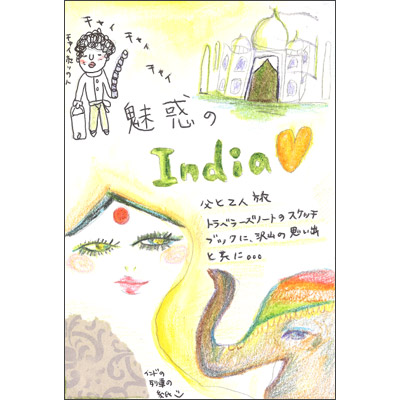 チャイ
チャイ
チャイ
魅惑の
India
父と2人旅
トラベラーズノートのスケッチ
ブックに、沢山の思い出
と共に。。。
インドの
列車の